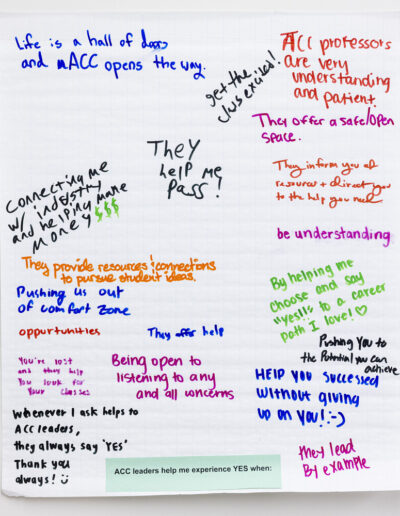 Life is a hall of doors
and ACC opens the way.
get the
class excited!
ACC professors
are very
understanding
and patient.
They offer a safe/open
space.
They
help me
pass!
Connecting me
w/ industry
and helping make
money $$$
They inform you of
resources + direct you
to the help you need
be understanding
They provide resources & connections
to pursue student ideas.
Pushing us out
of comfort zone
By helping me
choose and say
"yes!" to a career
path I love! ♡
oppurtunities
They offer help
Pushing You to
the Potential you can
achieve
You're lost
and they help
You look for
Your classes
Being open to
listening to any
and all concerns
HELP YOU SUCCESSED
without giving
up on you! :-)
Whenever I ask helps to
ACC leaders,
they always say 'YES'
Thank you
always! ☺
they lead
By example
ACC leaders help me experience YES when: